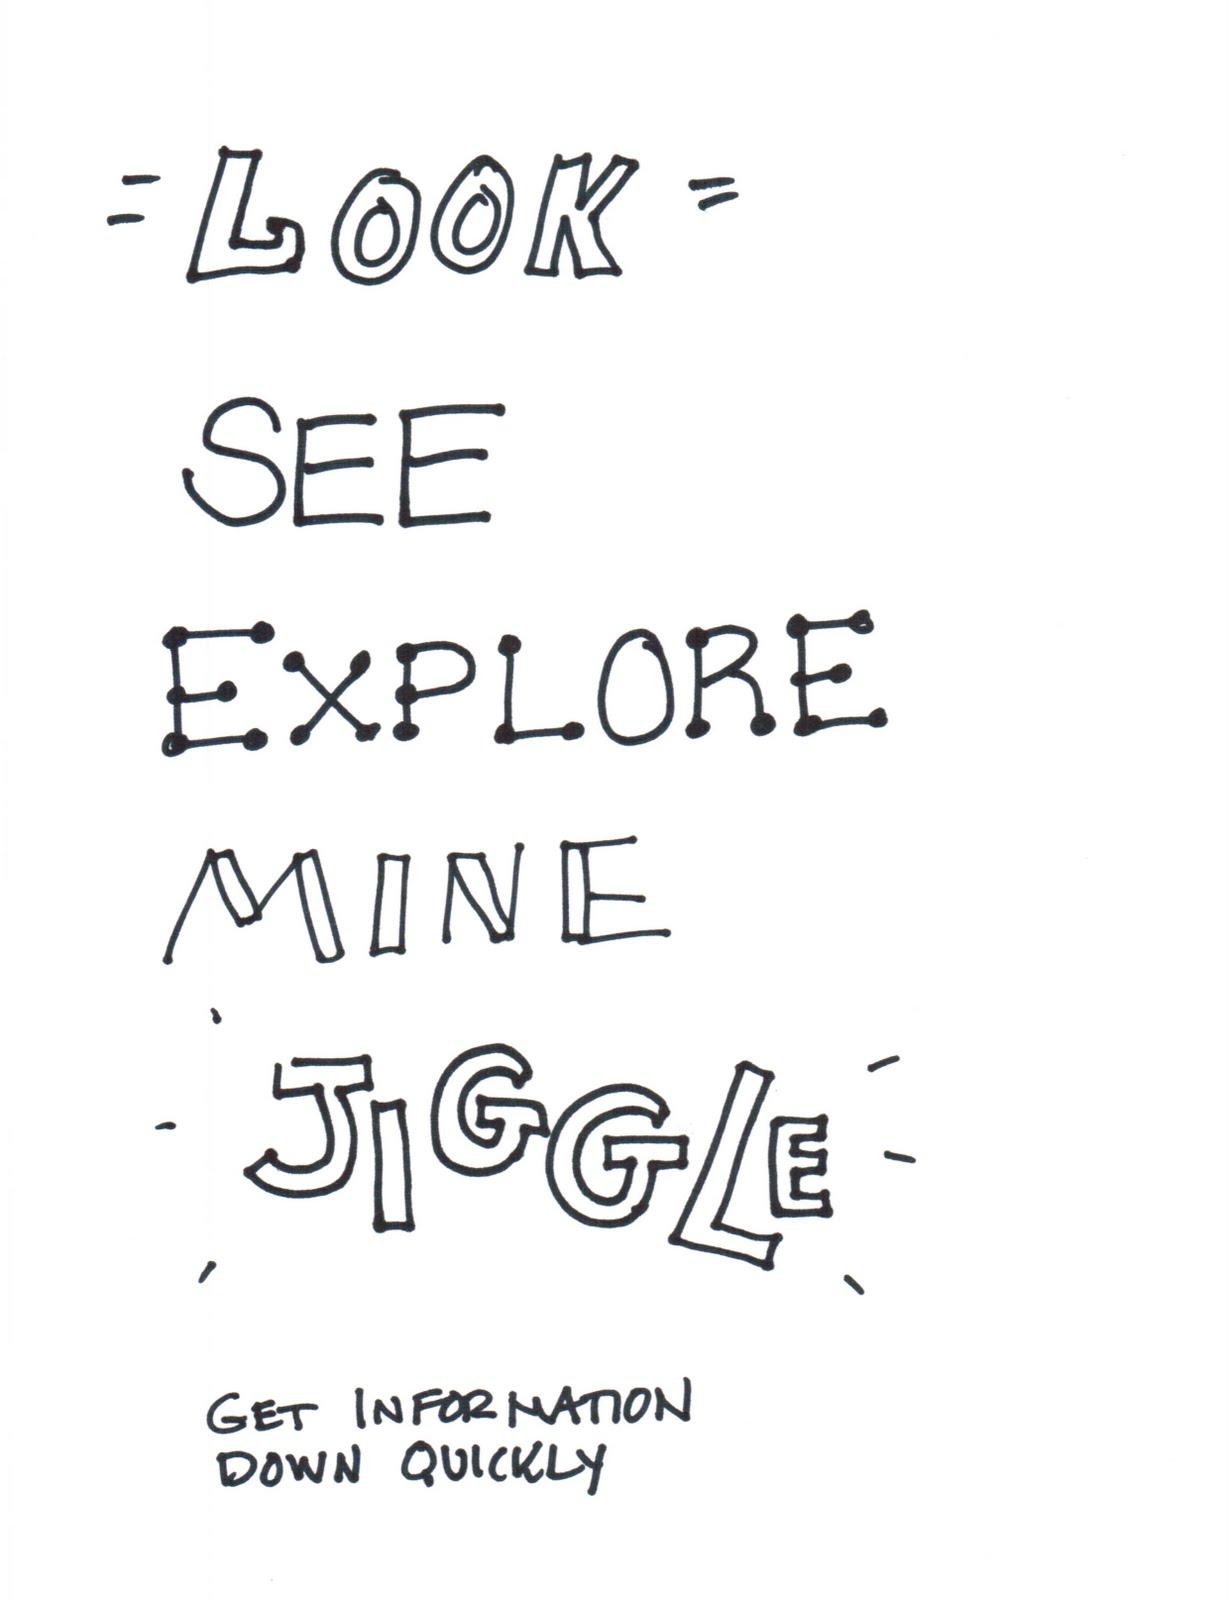 LOOK
SEE
EXPLORE
MINE
JIGGLE
GET INFORMATION
DOWN QUICKLY